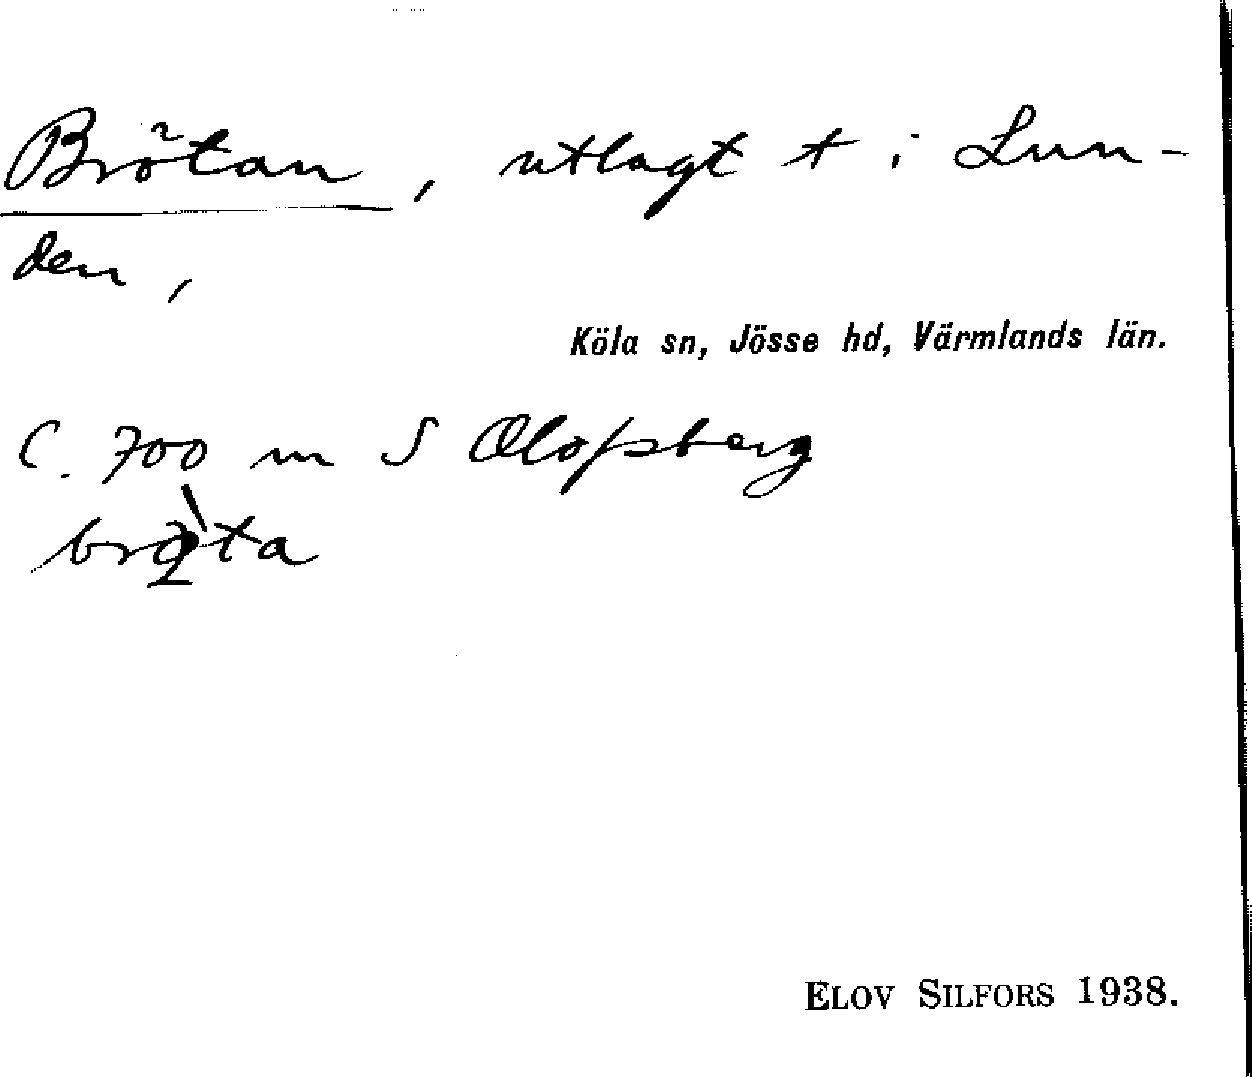 Brötan, utlagt t i Lun-
den,
Köla sn, Jösse hd, Värmlands län.
C. 700 m S Olofsberg
ELOV SILFORS 1938.